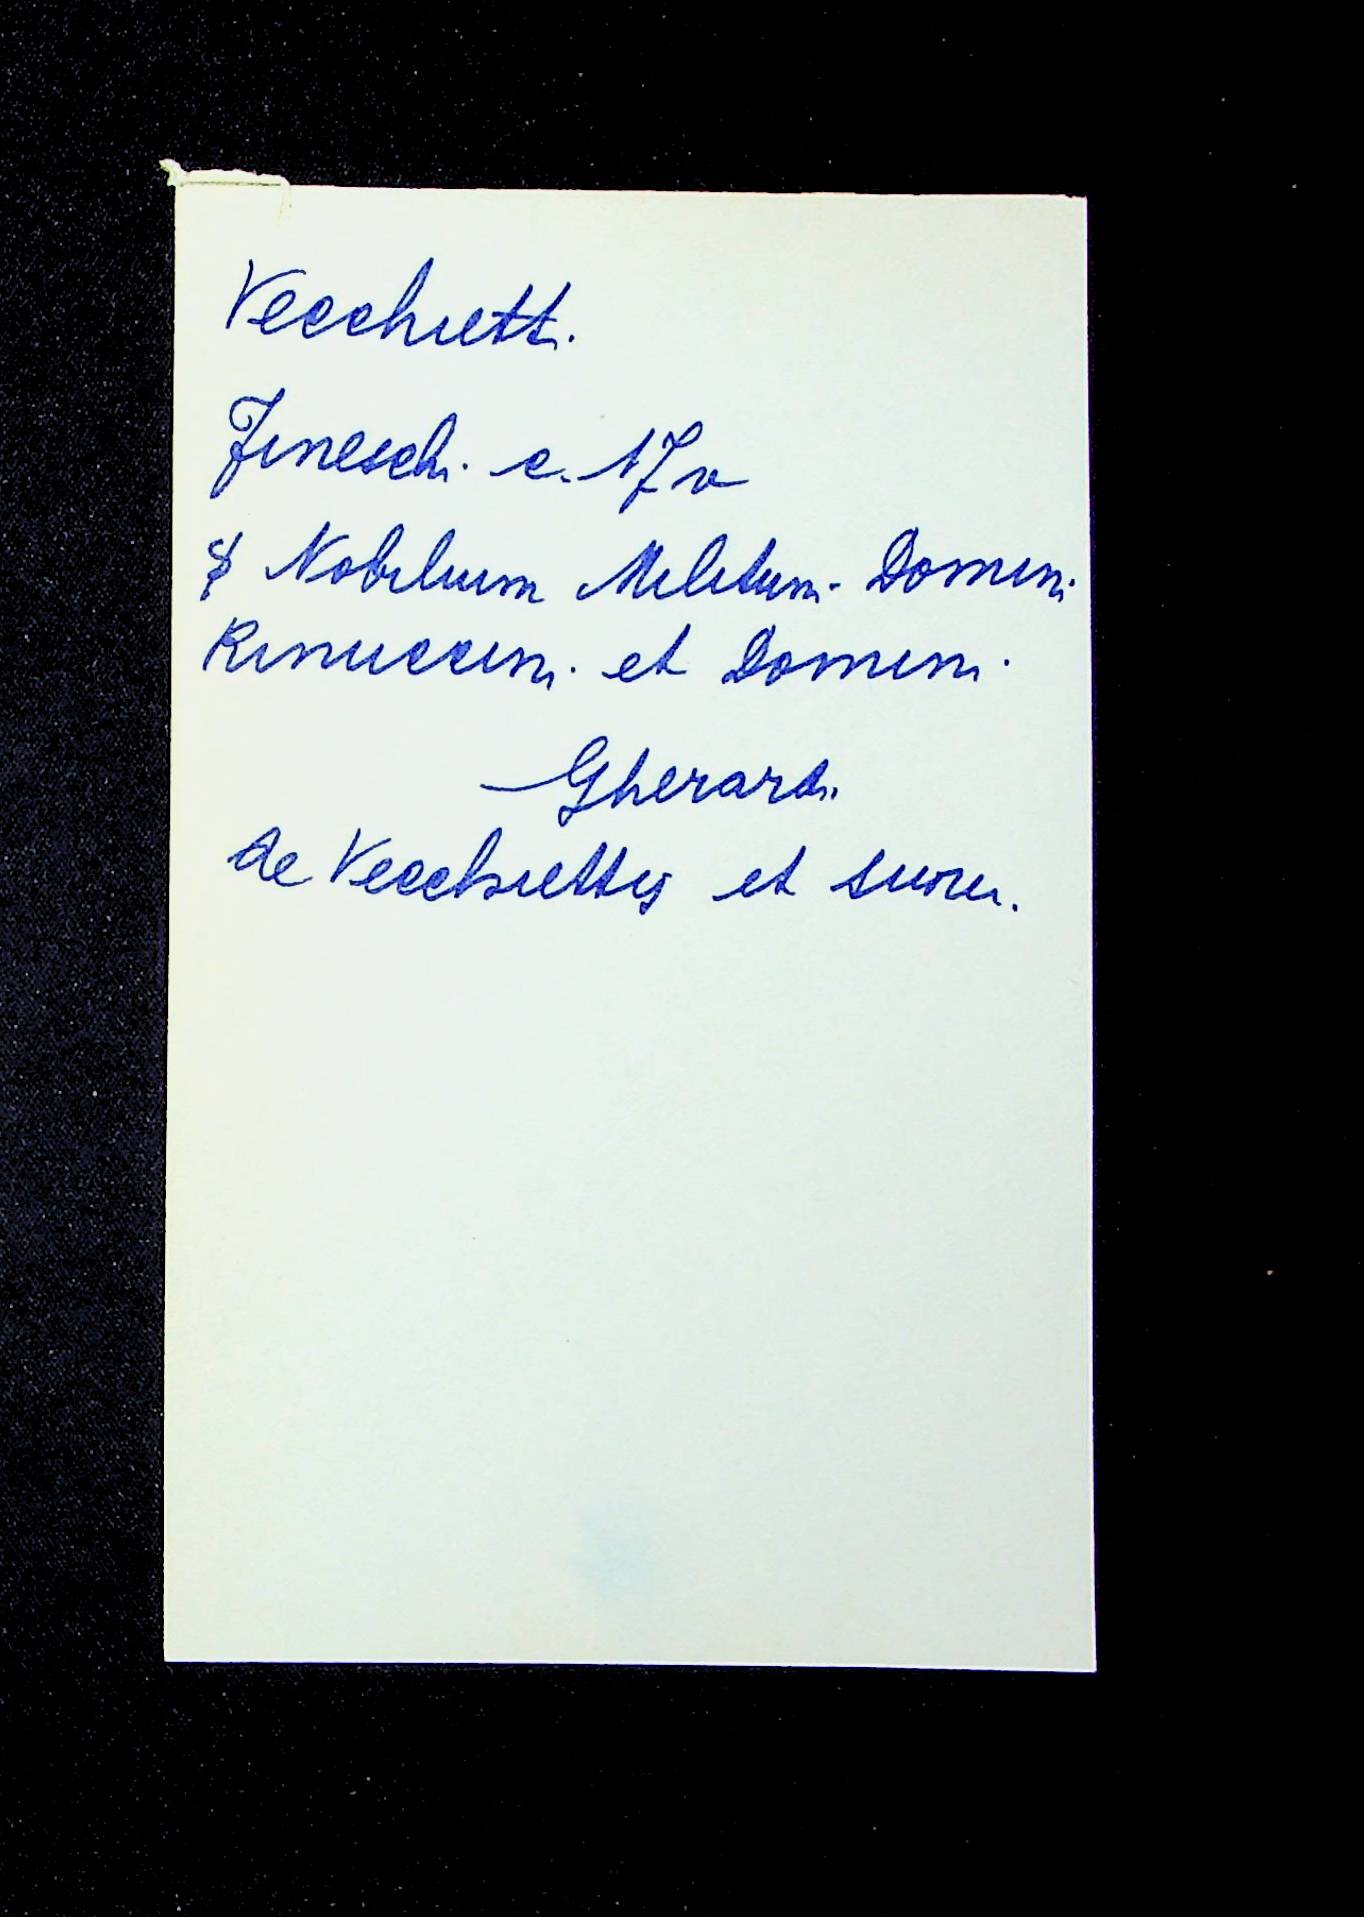 Vecchietti
Fineschi c. 17v
S Nobilium Militum Domini
Rinuccini et Domini
Gherardi
de Vecchiettis et suorum.